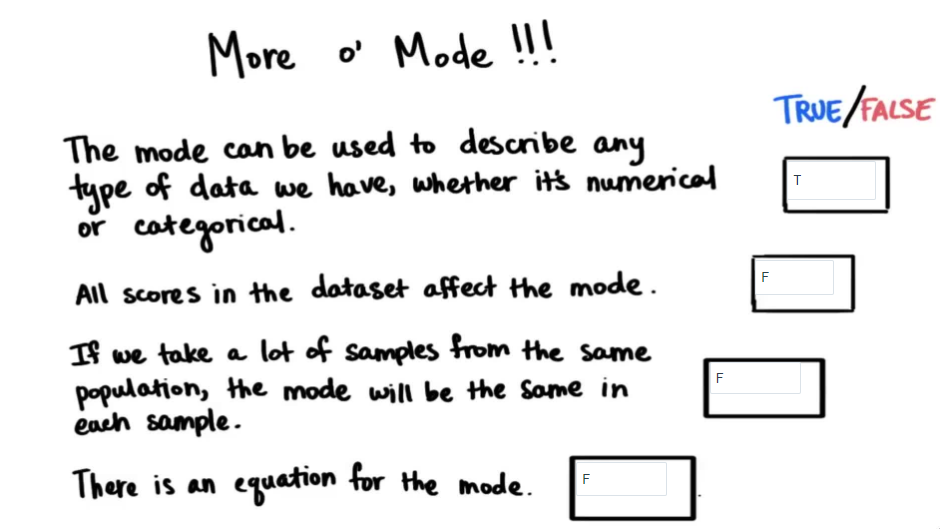 More o' Mode !!!
TRUE/FALSE
The mode can be used to describe any
type of data we have, whether it's numerical
or categorical.
T
All scores in the dataset affect the mode.
F
If we take a lot of samples from the same
population, the mode will be the same in
each sample.
F
There is an equation for the mode.
F
.